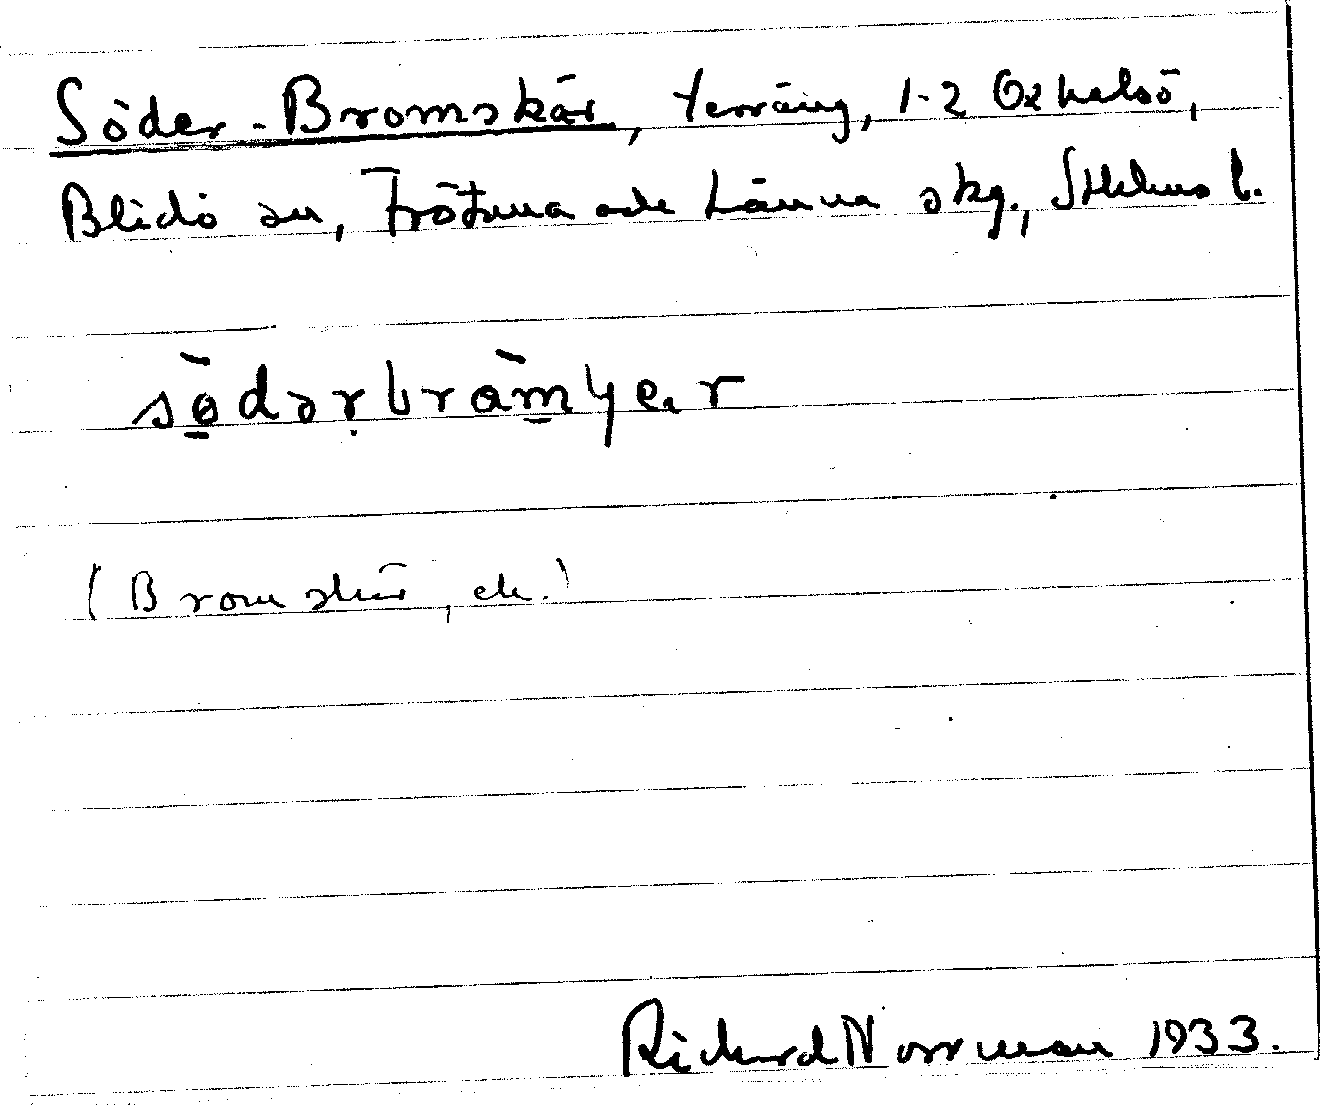 Söder-Bromskär, terräng, 1-2 Oxhalsö,
Blidö sn, Frötuna och Länna skg., Sthlms l.
södərbramɥer
(Bromskär, ek.)
Richard Norrman 1933.